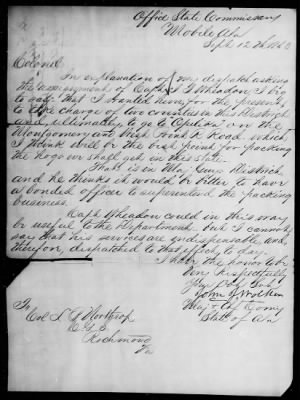 Office State Commissary
Mobile Ala
Sept 12th 1863
Colonel
In explanation of my dispatch asking
the assignment of Capt J Gheadon, I beg
to say that I wanted him for the present,
to take charge of two counties in this District
and ultimately, to go to "Opelika" on the
Montgomery and West Point R. Road, which
I think will be the best point for packing
the hogs we shall get in this State.
That is in Maj District
and he thinks it would be better to have
a bonded officer to superintend the packing
business.
Capt Gheadon could in this way
be useful to the Department, but I cannot
say that his services are indispensable, and
therefore, dispatched to that effect to day.
I have the honor to be
Very Respectfully
Your Obt Svt
John J Walker
Maj & Comy
State of Ala
To
Col L B Northrop
C G S
Richmond
Va